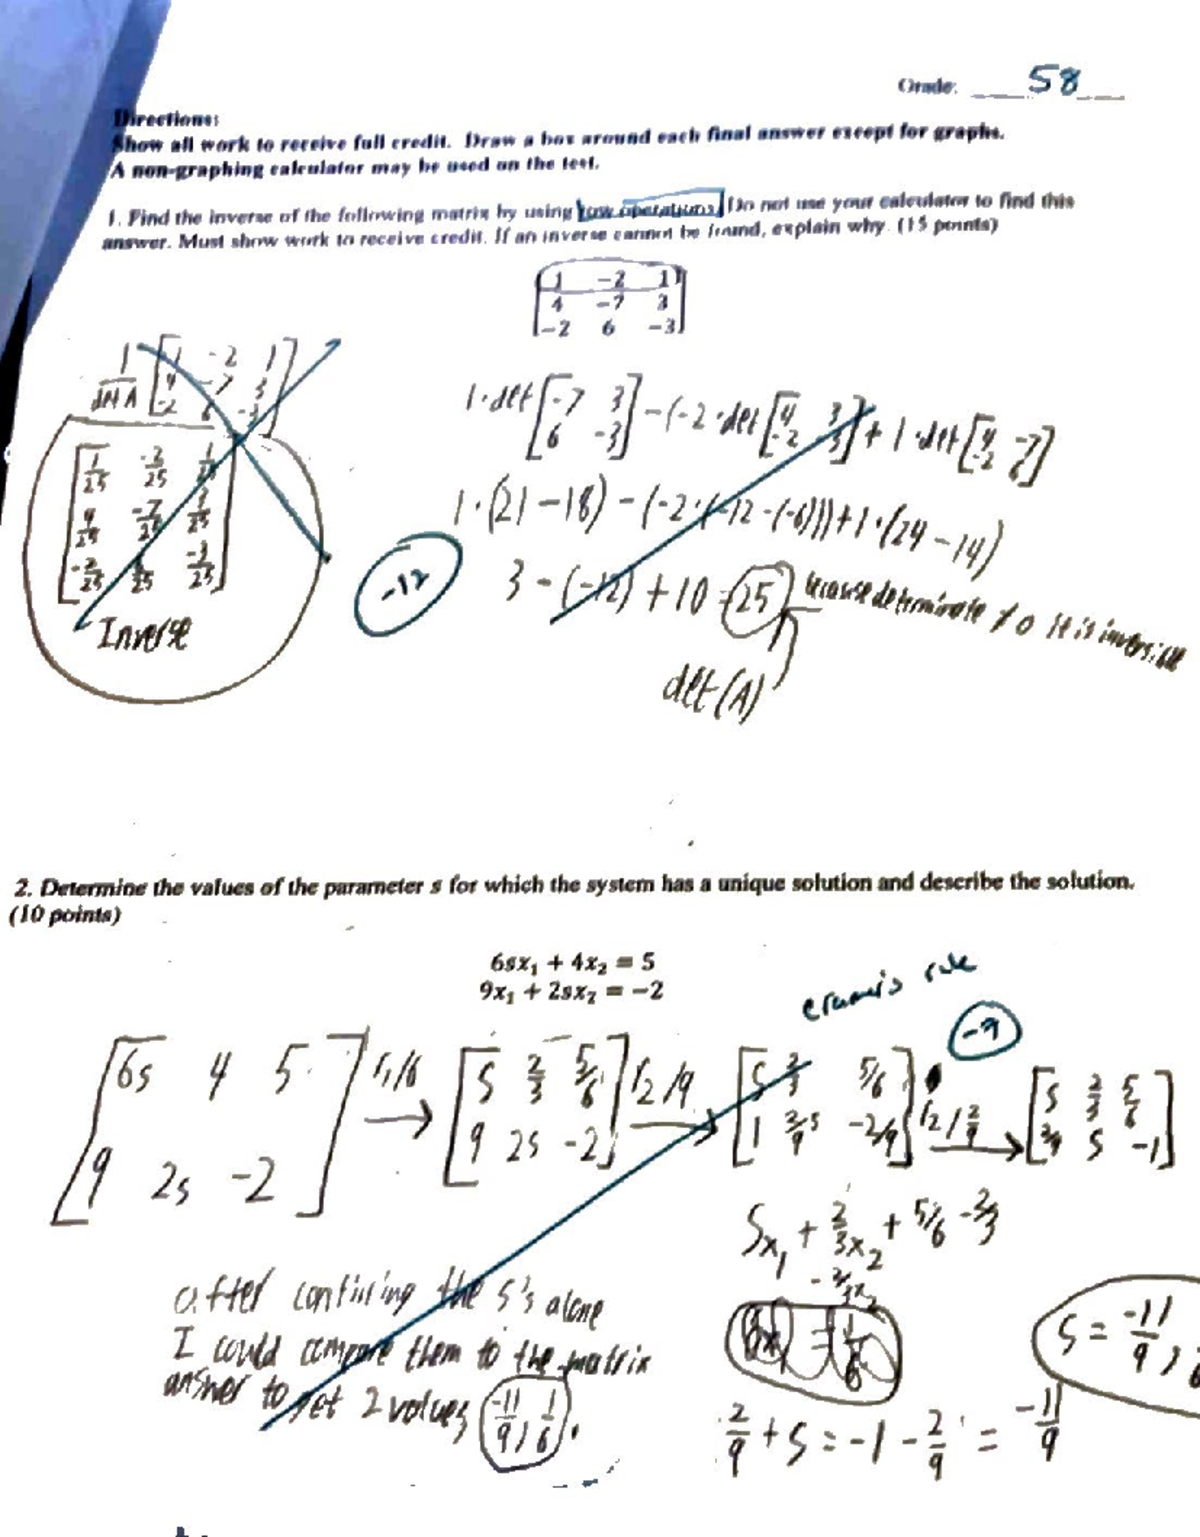 Grade: 58
Directions:
Show all work to receive full credit. Draw a box around each final answer except for graphs.
A non-graphing calculator may be used on the test.
1. Find the inverse of the following matrix by using row operations. Do not use your calculator to find this
answer. Must show work to receive credit. If an inverse cannot be found, explain why. (15 points)
1 -2 1
4 -7 3
-2 6 -3
1/det A [1 -2 1
4 -7 3
-2 6 -3]
1/25 -2/25 1/25
4/25 -7/25 3/25
-2/25 6/25 -3/25
Inverse
1·det[-7 3 6 -3] - (-2·det[4 3 -2 3] + 1·det[4 -7 -2 6]
1·(21-18) - (-2·(-12-(-6))) + 1·(24-14)
-12
3 - (-12) + 10 = 25 because determinate ≠ 0 it is inversible
det(A)
2. Determine the values of the parameter s for which the system has a unique solution and describe the solution.
(10 points)
6sx₁ + 4x₂ = 5
9x₁ + 2sx₂ = -2
cramer's rule
[6s 4 5
9 2s -2]
r₁/6 →
[s 2/3 5/6
9 2s -2]
r2/9 →
[s 2/3 5/6
1 2/9s -2/9]
r2/2/9 →
[s 2/3 5/6
2/9 s -1]
Sx₁ + 2/3x₂ + 5/6 - 2/3
- 2/3x₂
= 1/6
S = -11/9,
2/9 + s = -1 - 2/9 = -11/9
after the s's alone
I could compare them to the matrix
answer to get 2 values (-11/9, 1/6).